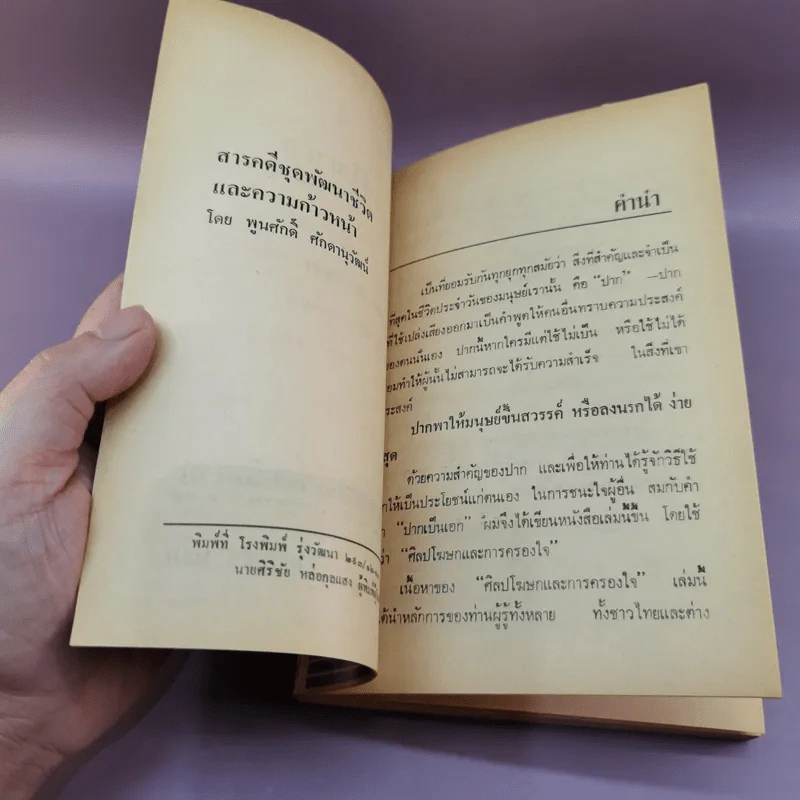 สารคดีชุดพัฒนาชีวิต
และความก้าวหน้า
โดย พูนศักดิ์ ศักดานุวัฒน์
พิมพ์ที่ โรงพิมพ์ รุ่งวัฒนา
นายศิริชัย หล่อกุลแสง
คำนำ
เป็นที่ยอมรับกันทุกยุกทุกสมัยว่า สิ่งที่สำคัญและจำเป็น
ที่สุดในชีวิตประจำวันของมนุษย์เรานั้น คือ “ปาก” —ปาก
ที่ใช้เปล่งเสียงออกมาเป็นคำพูดให้คนอื่นทราบความประสงค์
ของตนนั่นเอง ปากนี้หากใครมีแต่ใช้ไม่เป็น หรือใช้ไม่ได้
อมทำให้ผู้นั้นไม่สามารถจะได้รับความสำเร็จ ในสิ่งที่เขา
ระสงค์
ปากพาให้มนุษย์ขึ้นสวรรค์ หรือลงนรกได้ ง่าย
สุด
ด้วยความสำคัญของปาก และเพื่อให้ท่านได้รู้จักวิธีใช้
ให้เป็นประโยชน์แก่ตนเอง ในการชนะใจผู้อื่น สมกับคำ
“ปากเป็นเอก” ผมจึงได้เขียนหนังสือเล่มนี้ขึ้น โดยใช้
ว่า “ศิลปโฆษกและการครองใจ”
เนื้อหาของ “ศิลปโฆษกและการครองใจ” เล่มนี้
ได้นำหลักการของท่านผู้รู้ทั้งหลาย ทั้งชาวไทยและต่าง